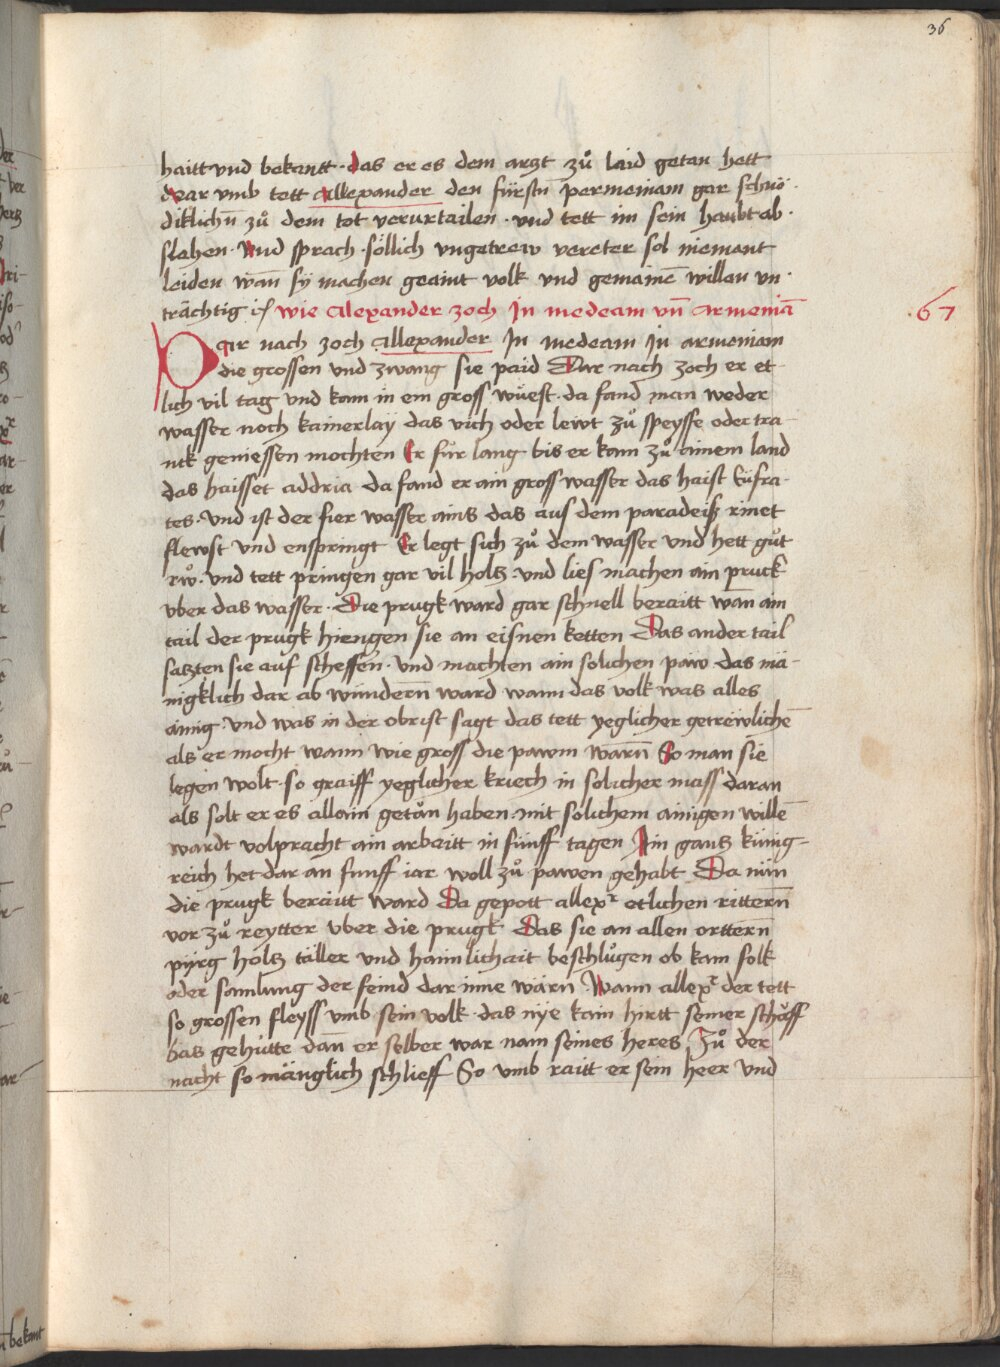 36
haitt vnd bekantt · das er es dem artzt zuͦ laid getan hett
dar vmb tett allexander den fürstn̄ permeniam gar schnö ·
diklichn̄ zuͦ dem tot verurtailen · vnd tett im sein haubt ab ·
slahen · Vnd sprach · söllich vngetrew vereter sol niemant
leiden wan̄ sÿ machen geaint volk vnd gemainē willen vn ·
trächtig
wie alexander zoch In medeam vn̄ armeniā
67
Dar nach zoch allexander In medeam in armeniam
die grossen vnd zwang sie paid Dar nach zoch er et
lich vil tag vnd kam in ein gross wüest · da fand man weder
wasser noch kainerlaÿ das vich oder lewt zuͦ speysse oder tra-
nck geniessen mochten Er fuͦr lang bis er kam zuͦ ainem land
das haisset addria da fand er ain gross wasser das haist Eüfra-
tes · Vnd ist der fier wasser ains das aus dem paradeiß rinet
flewst vnd enspringt Er legt sich zuͦ dem wasser vnd hett guͦt
rwͦ · vnd tett pringen gar vil holtz · vnd lies machen ain pruck
vber das wasser · Die prugk ward gar schnell beraitt wan̄ ain
tail der prugk hiengen sie an eisnen ketten Das ander tail
satzten sie auf scheffen · vnd machten ain solichen paw das mä-
nigklich dar ab wundern̄ ward wann das volk was alles
ainig · vnd was in der obrist sagt das tett yeglicher getrewlichē
als er mocht wann wie gross die pawm warn̄ So man sie
legen wolt · so graiff yeglicher kriech in solicher mass daran
als solt er es allain getän haben · mit solichem ainigen willē
wardt volpracht ain arbaitt in fünff tagen Ain gantz künig-
reich het dar an funff iar woll zuͦ pawen gehabt Da nün
die prugk beraitt ward Da gepott allexr etlichen rittern̄
vor zuͦ reytter vber die prugk Das sie an allen orttern̄
pÿrg höltz täller vnd haimlichait beschluͦgen ob kam folk
oder samlung der feind dar inne wärn Wann allexr der tett
so grossen fleyss vmb sein volk · das nÿe kain hirtt seiner schäff
bas gehütte dan̄ er selber war nam seines heres Zuͦ der
nacht so mänglich schlieff So vmb raitt er sein heer vnd